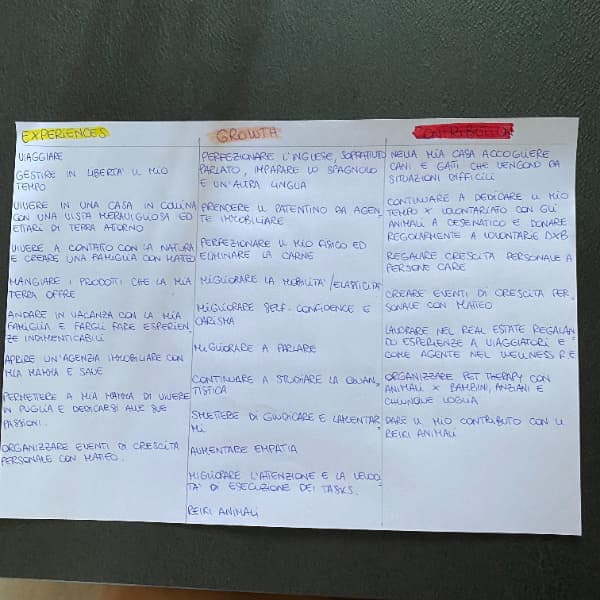 EXPERIENCES
VIAGGIARE
GESTIRE IN LIBERTA' IL MIO
TEMPO
VIVERE IN UNA CASA IN COLLINA
CON UNA VISTA MERAVIGLIOSA ED
ETTARI DI TERRA ATTORNO
VIVERE A CONTATTO CON LA NATURA
E CREARE UNA FAMIGLIA CON MATTEO
MANGIARE I PRODOTTI CHE LA MIA
TERRA OFFRE
ANDARE IN VACANZA CON LA MIA
FAMIGLIA E FARGLI FARE ESPERIEN
ZE INDIMENTICABILI
APRIRE UN'AGENZIA IMMOBILIARE CON
MIA MAMMA E SAVE
PERMETTERE A MIA MAMMA DI VIVERE
IN PUGLIA E DEDICARSI ALLE SUE
PASSIONI.
ORGANIZZARE EVENTI DI CRESCITA
PERSONALE CON MATTEO.
GROWTH
PERFEZIONARE L'INGLESE, SOPRATTUTTO
PARLATO, IMPARARE LO SPAGNOLO
E UN'ALTRA LINGUA
PRENDERE IL PATENTINO DA AGEN
TE IMMOBILIARE
PERFEZIONARE IL MIO FISICO ED
ELIMINARE LA CARNE
MIGLIORARE LA MOBILITA'/ELASTICITA'
MIGLIORARE SELF-CONFIDENCE E
CARISMA
MIGLIORARE A PARLARE
CONTINUARE A STUDIARE LA QUAN
TISTICA
SMETTERE DI GIUDICARE E LAMENTAR
MI
AUMENTARE EMPATIA
MIGLIORARE L'ATTENZIONE E LA VELOCI
TA' DI ESECUZIONE DEI TASKS.
REIKI ANIMALI
CONTRIBUTION
NELLA MIA CASA ACCOGLIERE
CANI E GATTI CHE VENGONO DA
SITUAZIONI DIFFICILI
CONTINUARE A DEDICARE IL MIO
TEMPO X VOLONTARIATO CON GLI
ANIMALI A CESENATICO E DONARE
REGOLARMENTE A VOLONTARIE DXB
REGALARE CRESCITA PERSONALE A
PERSONE CARE
CREARE EVENTI DI CRESCITA PER
SONALE CON MATTEO
LAVORARE NEL REAL ESTATE REGALAN
DO ESPERIENZE A VIAGGIATORI E
COME AGENTE NEL WELLNESS R.E
ORGANIZZARE PET THERAPY CON
ANIMALI X BAMBINI, ANZIANI E
CHIUNQUE VOGLIA
DARE IL MIO CONTRIBUTO CON IL
REIKI ANIMALI